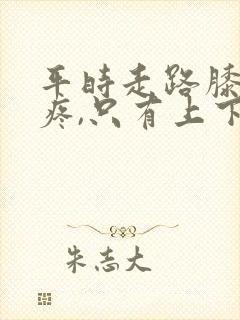 平时走路膝
疼,只有上下
朱志大